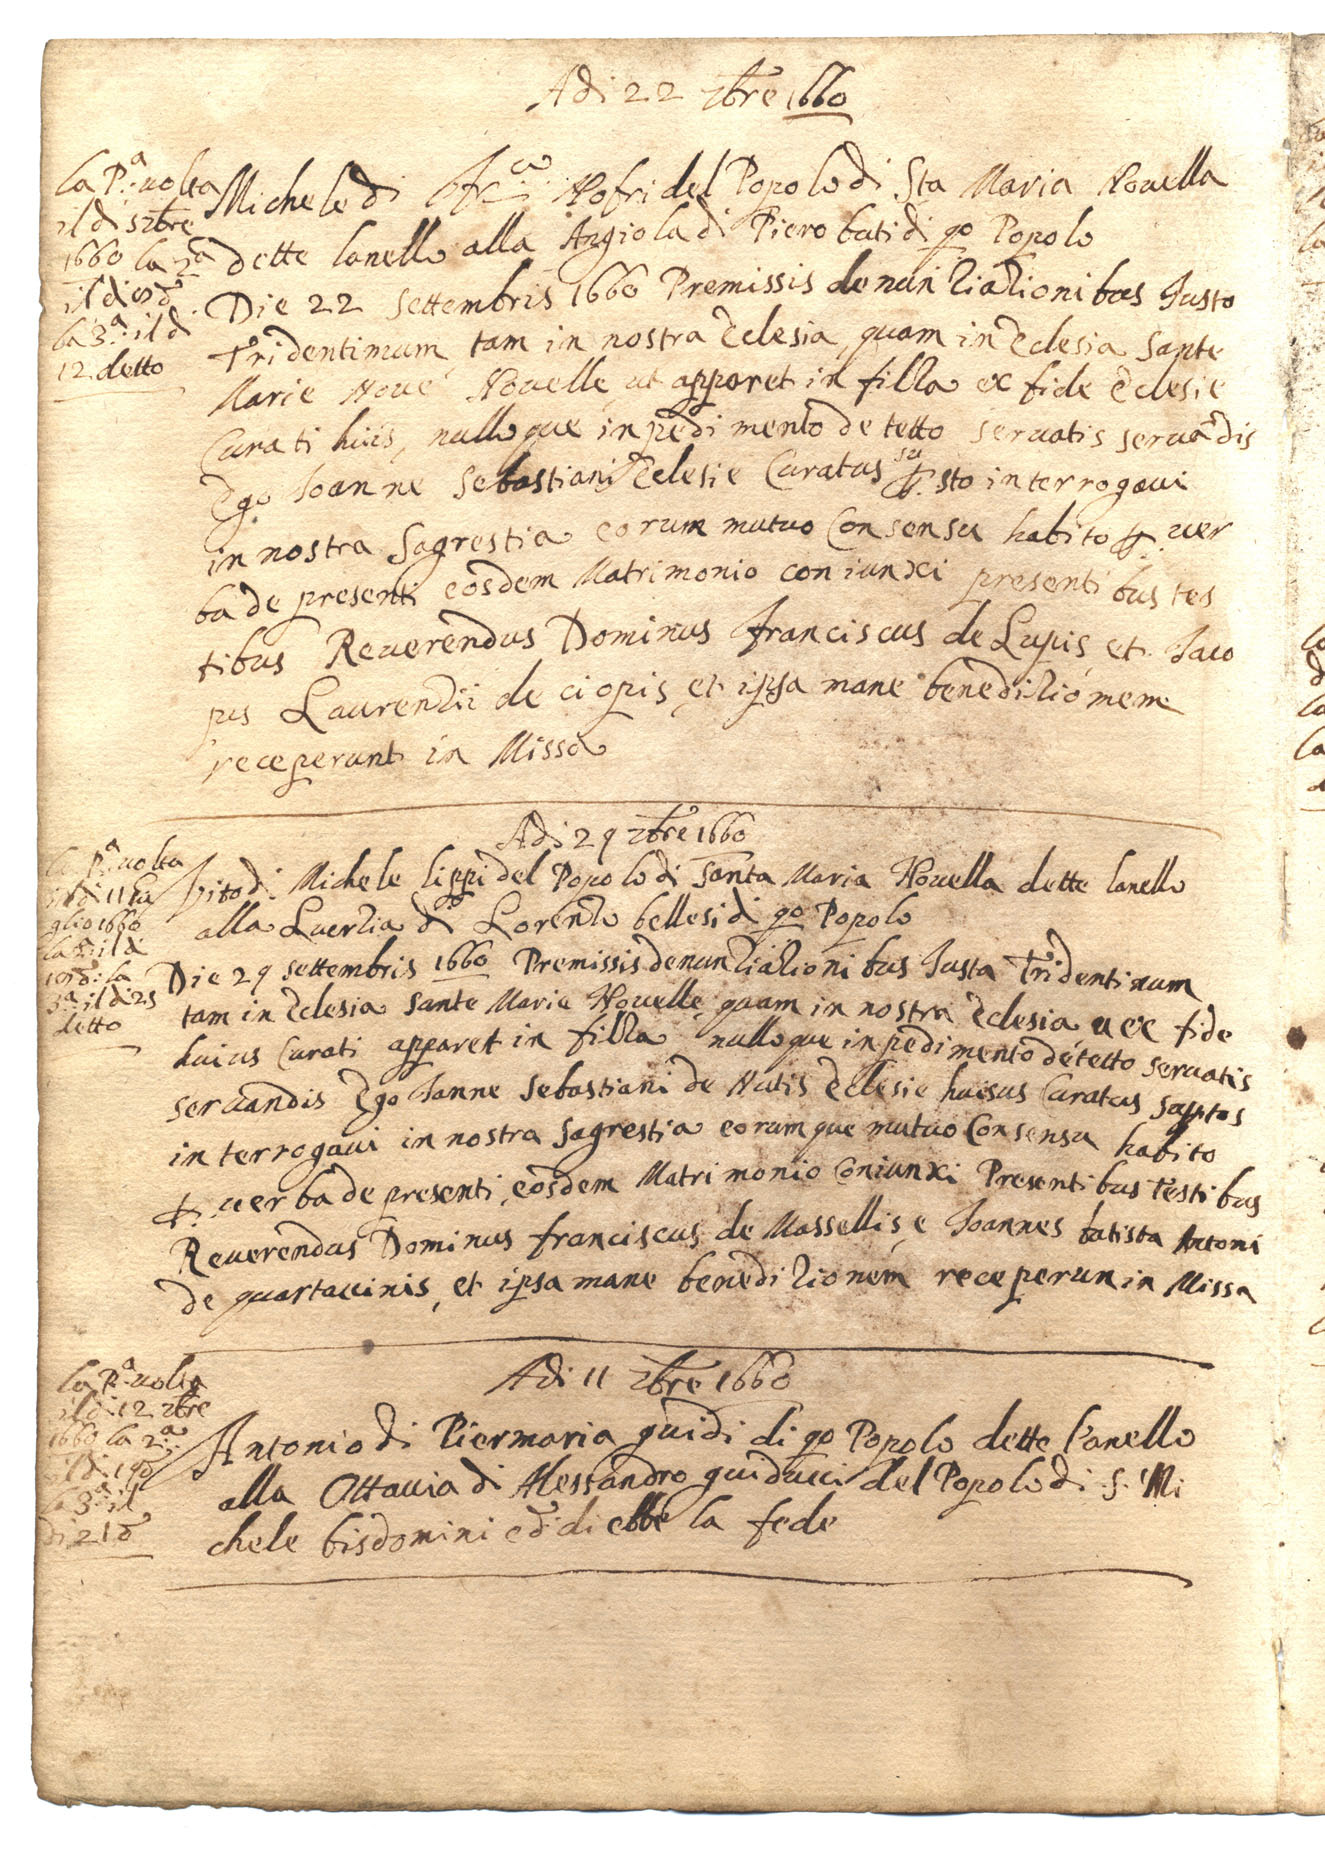 Adi 22 7bre 1660
la P.a uolta
il di 5 7bre
1660 la 2a
il di 8 d.o
la 3.a il d
12 detto
Michele di Fr.co Nofri del Popolo di Sta Maria Nouella
dette lanello alla Angiola di Piero bati di qo Popolo
Die 22 settembris 1660 Premissis denuntiationibus Justo
Tridentinum tam in nostra Eclesia, quam in Eclesia Sante
Marie Noue Nouelle, ut apparet in filza ex fide Eclesie
Curati huis, nulloque inpedimento detetto seruatis seruadis
Ego Joanne Sebastiani Eclesie Curatus su p.sto interrogaui
in nostra Sagrestia eorum mutuo Consensu habito p. uer
ba de presenti eosdem Matrimonio coniunxi presentibus tes
tibus Reuerendus Dominus Franciscus de Lupis et Jaco
pus Laurenzii de ciopis, et ipsa mane beneditiónem
receperunt in Missa
Adi 29 7bre 1660
la P.a uolta
il di 11 lu
glio 1660
la 2.a il di
18 d.o la
3.a il di 25
detto
Vito di Michele lippi del Popolo di Santa Maria Nouella dette lanello
alla Luertia di Lorenzo bellesi di qo Popolo
Die 29 settembris 1660 Premissis denuntiationibus Justa Tridentinum
tam in Eclesia Sante Marie Nouelle, quam in nostra Eclesia u ex fide
huius Curati apparet in filza nulloque inpedimento detetto seruatis
seruandis Ego Janne Sebastiani de Nutis Eclesie huisus Curatus sapptos
interrogaui in nostra Sagrestia eorumque mutuo Consensu habito
p. uerba de presenti, eosdem Matrimonio Coniunxi Presentibus Testibus
Reuerendus Dominus franciscus de Massellis, e Joannes batista Antoni
de quartaccinis, et ipsa mane beneditionem receperun in Missa
Adi 11 7bre 1660
la P.a uolta
il di 12 7bre
1660 la 2.a
il di 19 d
la 3.a il
di 21 d.o
Antonio di Piermaria guidi di qo Popolo dette l'anello
alla Ottauia di Alessandro guiducci del Popolo di S. Mi
chele bisdomini e d.o di ebbe la fede